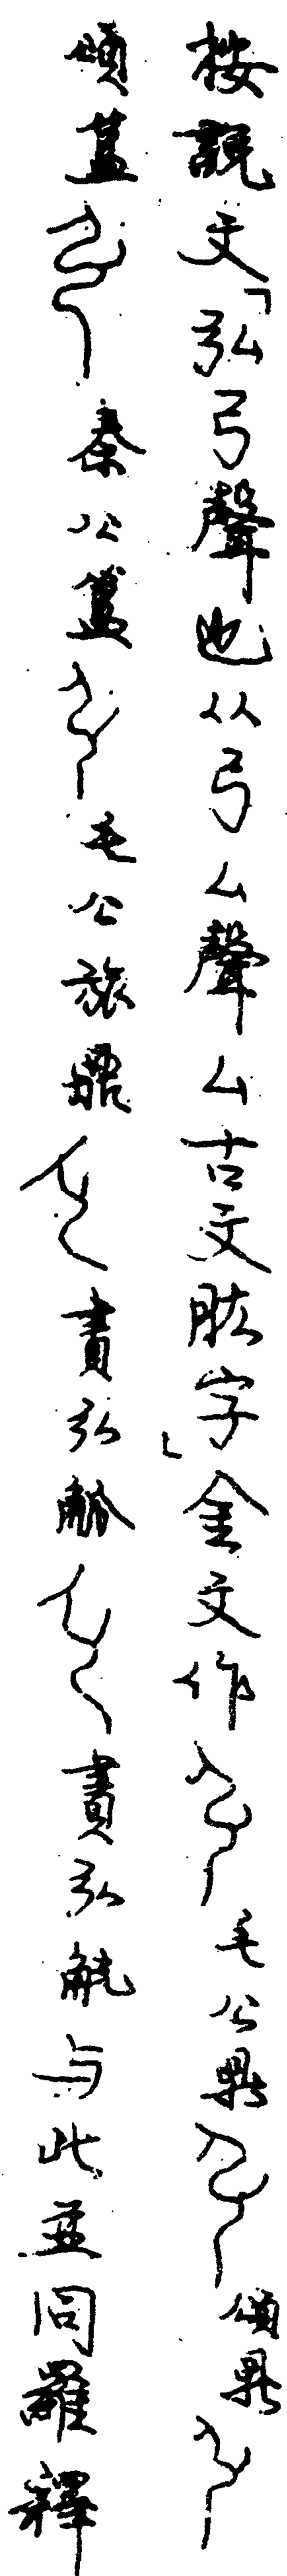 按說文「弘弓聲也从弓厶聲厶古文肱字」金文作毛公鼎頌鼎
頌簋秦公簋毛公旅鼎書弘觚書弘觥与此並同羅釋